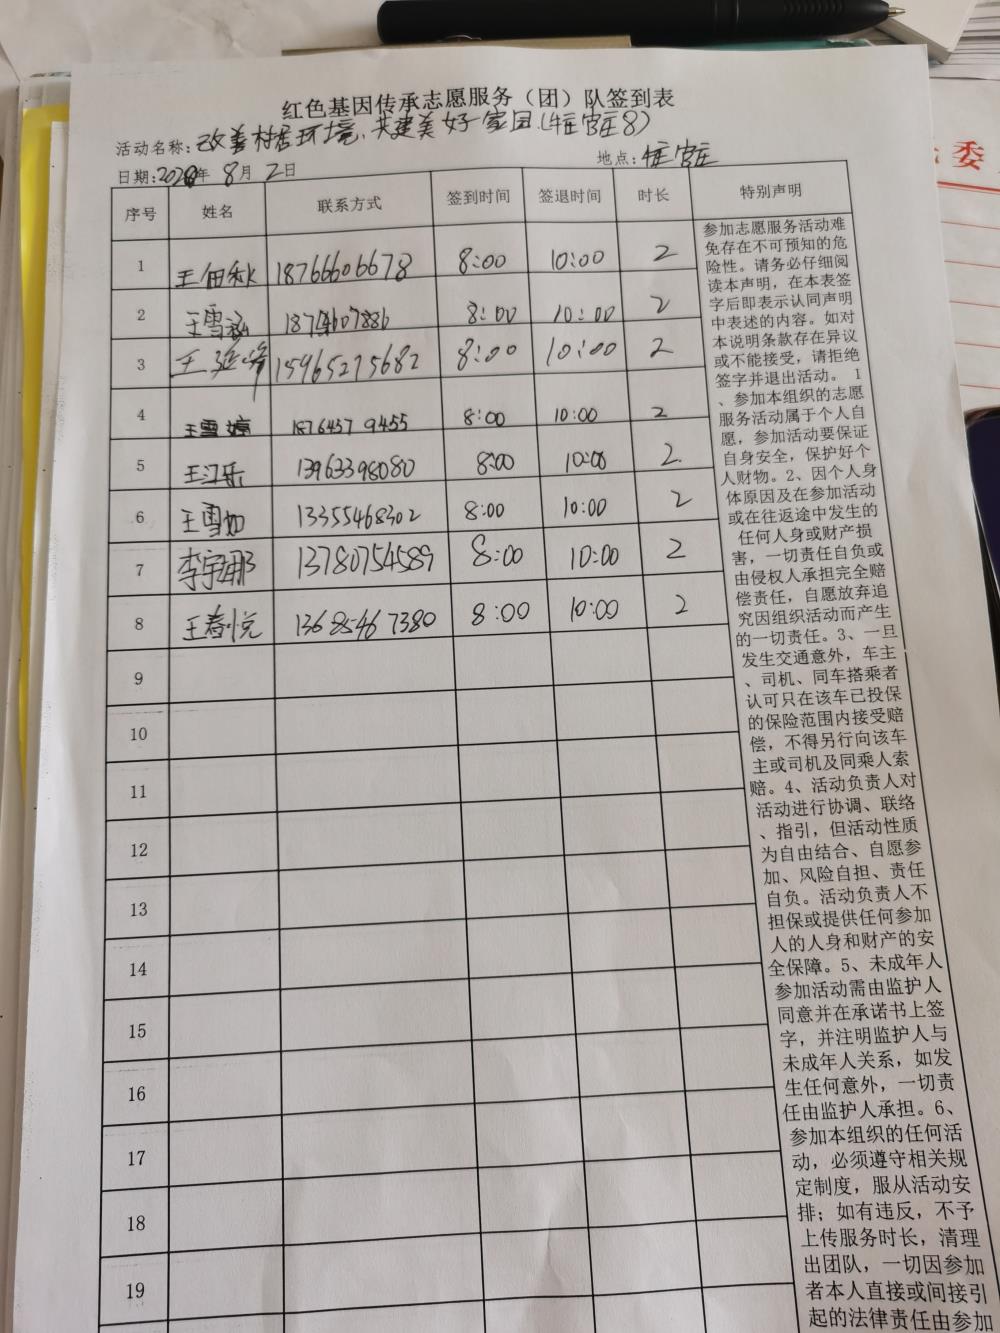 红色基因传承志愿服务（团）队签到表
活动名称：改善村居环境，共建美好家园(牟官庄8)
日期:2020年 8月 2日 地点：官庄
序号 姓名 联系方式 签到时间 签退时间 时长 特别声明
1 王佃秋 18766606678 8:00 10:00 2
2 王雪涵 8:00 10:00 2
3 王延峰 15965275682 8:00 10:00 2
4 王雪婷 1876457 9455 8:00 10:00 2
5 王江乐 13963398080 8:00 10:00 2
6 王雪如 13355468302 8:00 10:00 2
7 李宇娜 13780754589 8:00 10:00 2
8 王春悦 13685467380 8:00 10:00 2
9
10
11
12
13
14
15
16
17
18
19
参加志愿服务活动难
免存在不可预知的危
险性。请务必仔细阅
读本声明，在本表签
字后即表示认同声明
中表述的内容。如对
本说明条款存在异议
或不能接受，请拒绝
签字并退出活动。 1
、参加本组织的志愿
服务活动属于个人自
愿，参加活动要保证
自身安全，保护好个
人财物。2、因个人身
体原因及在参加活动
或在往返途中发生的
任何人身或财产损
害，一切责任自负或
由侵权人承担完全赔
偿责任，自愿放弃追
究因组织活动而产生
的一切责任。3、一旦
发生交通意外，车主
、司机、同车搭乘者
认可只在该车已投保
的保险范围内接受赔
偿，不得另行向该车
主或司机及同乘人索
赔。4、活动负责人对
活动进行协调、联络
、指引，但活动性质
为自由结合、自愿参
加、风险自担、责任
自负。活动负责人不
担保或提供任何参加
人的人身和财产的安
全保障。5、未成年人
参加活动需由监护人
同意并在承诺书上签
字，并注明监护人与
未成年人关系，如发
生任何意外，一切责
任由监护人承担。6、
参加本组织的任何活
动，必须遵守相关规
定制度，服从活动安
排；如有违反，不予
上传服务时长，清理
出团队，一切因参加
者本人直接或间接引
起的法律责任由参加
委